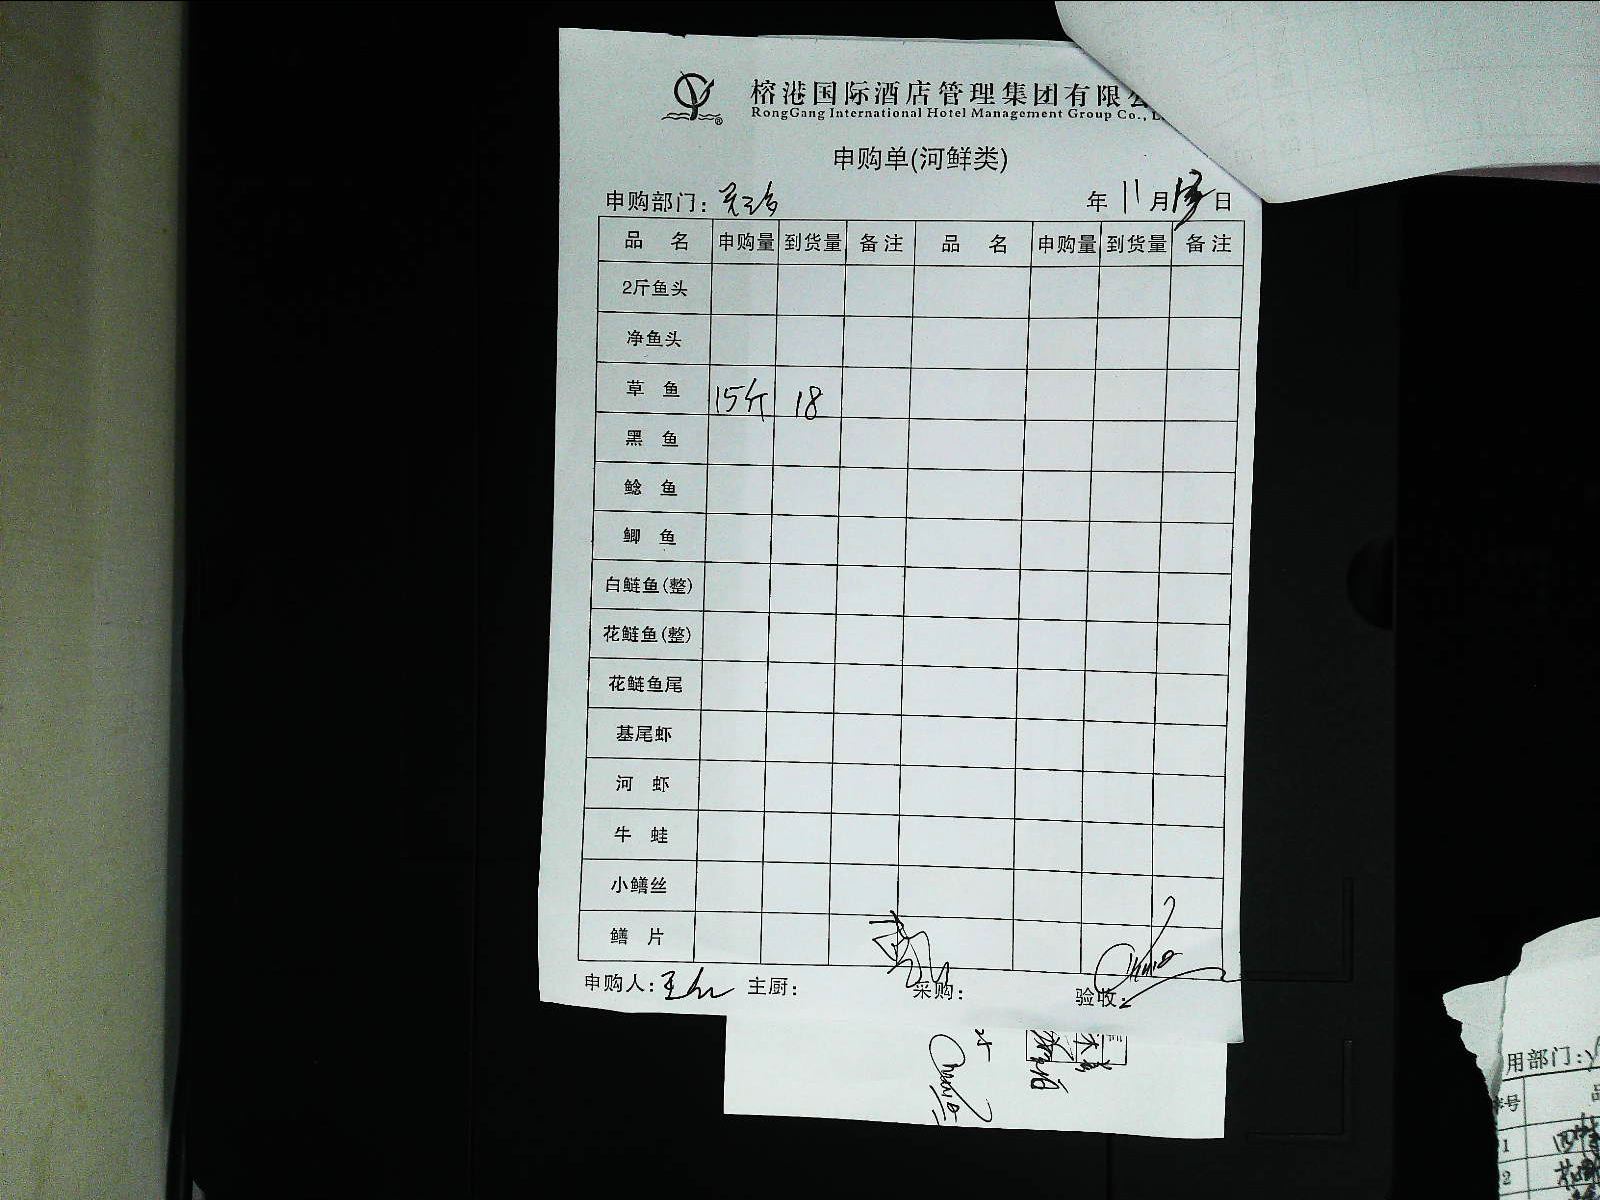 榕港国际酒店管理集团有限公
RongGang International Hotel Management Group Co., L
申购单(河鲜类)
申购部门: 年 11 月 日
品名 申购量 到货量 备注 品名 申购量 到货量 备注
2斤鱼头
净鱼头
草鱼 15斤 18
黑鱼
鲶鱼
鲫鱼
白鲢鱼(整)
花鲢鱼(整)
花鲢鱼尾
基尾虾
河虾
牛蛙
小鳝丝
鳝片
申购人: 主厨: 采购: 验收:
用部门:
序号 品
1
2